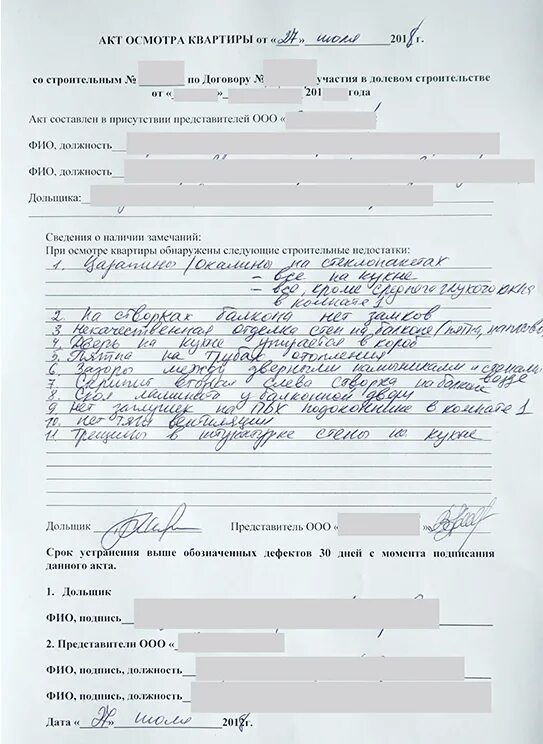 АКТ ОСМОТРА КВАРТИРЫ от «27» июля 2018 г.
со строительным № по Договору № участия в долевом строительстве
от « » 201 года
Акт составлен в присутствии представителей ООО «
ФИО, должность
ФИО, должность
Дольщика:
Сведения о наличии замечаний:
При осмотре квартиры обнаружены следующие строительные недостатки:
1. Царапины/окалины на стеклопакетах
– все на кухне
– все, кроме среднего глухого окна
в комнате
2. На створках балкона нет замков
3. Некачественная отделка стен на балконе (пятна,
4. Дверь на кухне упирается в короб
5. Пятна на трубах отопления
6. Зазоры между дверными наличниками и стенами
везде
7. Скрипит вторая слева створка на балкон
8. Скол ламината у балконной двери
9. Нет заглушек на ПВХ подоконнике в комнате 1
10. Нет тяги вентиляции
11. Трещины в штукатурке стены на кухне
Дольщик Представитель ООО « »
Срок устранения выше обозначенных дефектов 30 дней с момента подписания
данного акта.
1. Дольщик
ФИО, подпись
2. Представители ООО «
ФИО, подпись, должность
ФИО, подпись, должность
Дата «27» июля 2018г.